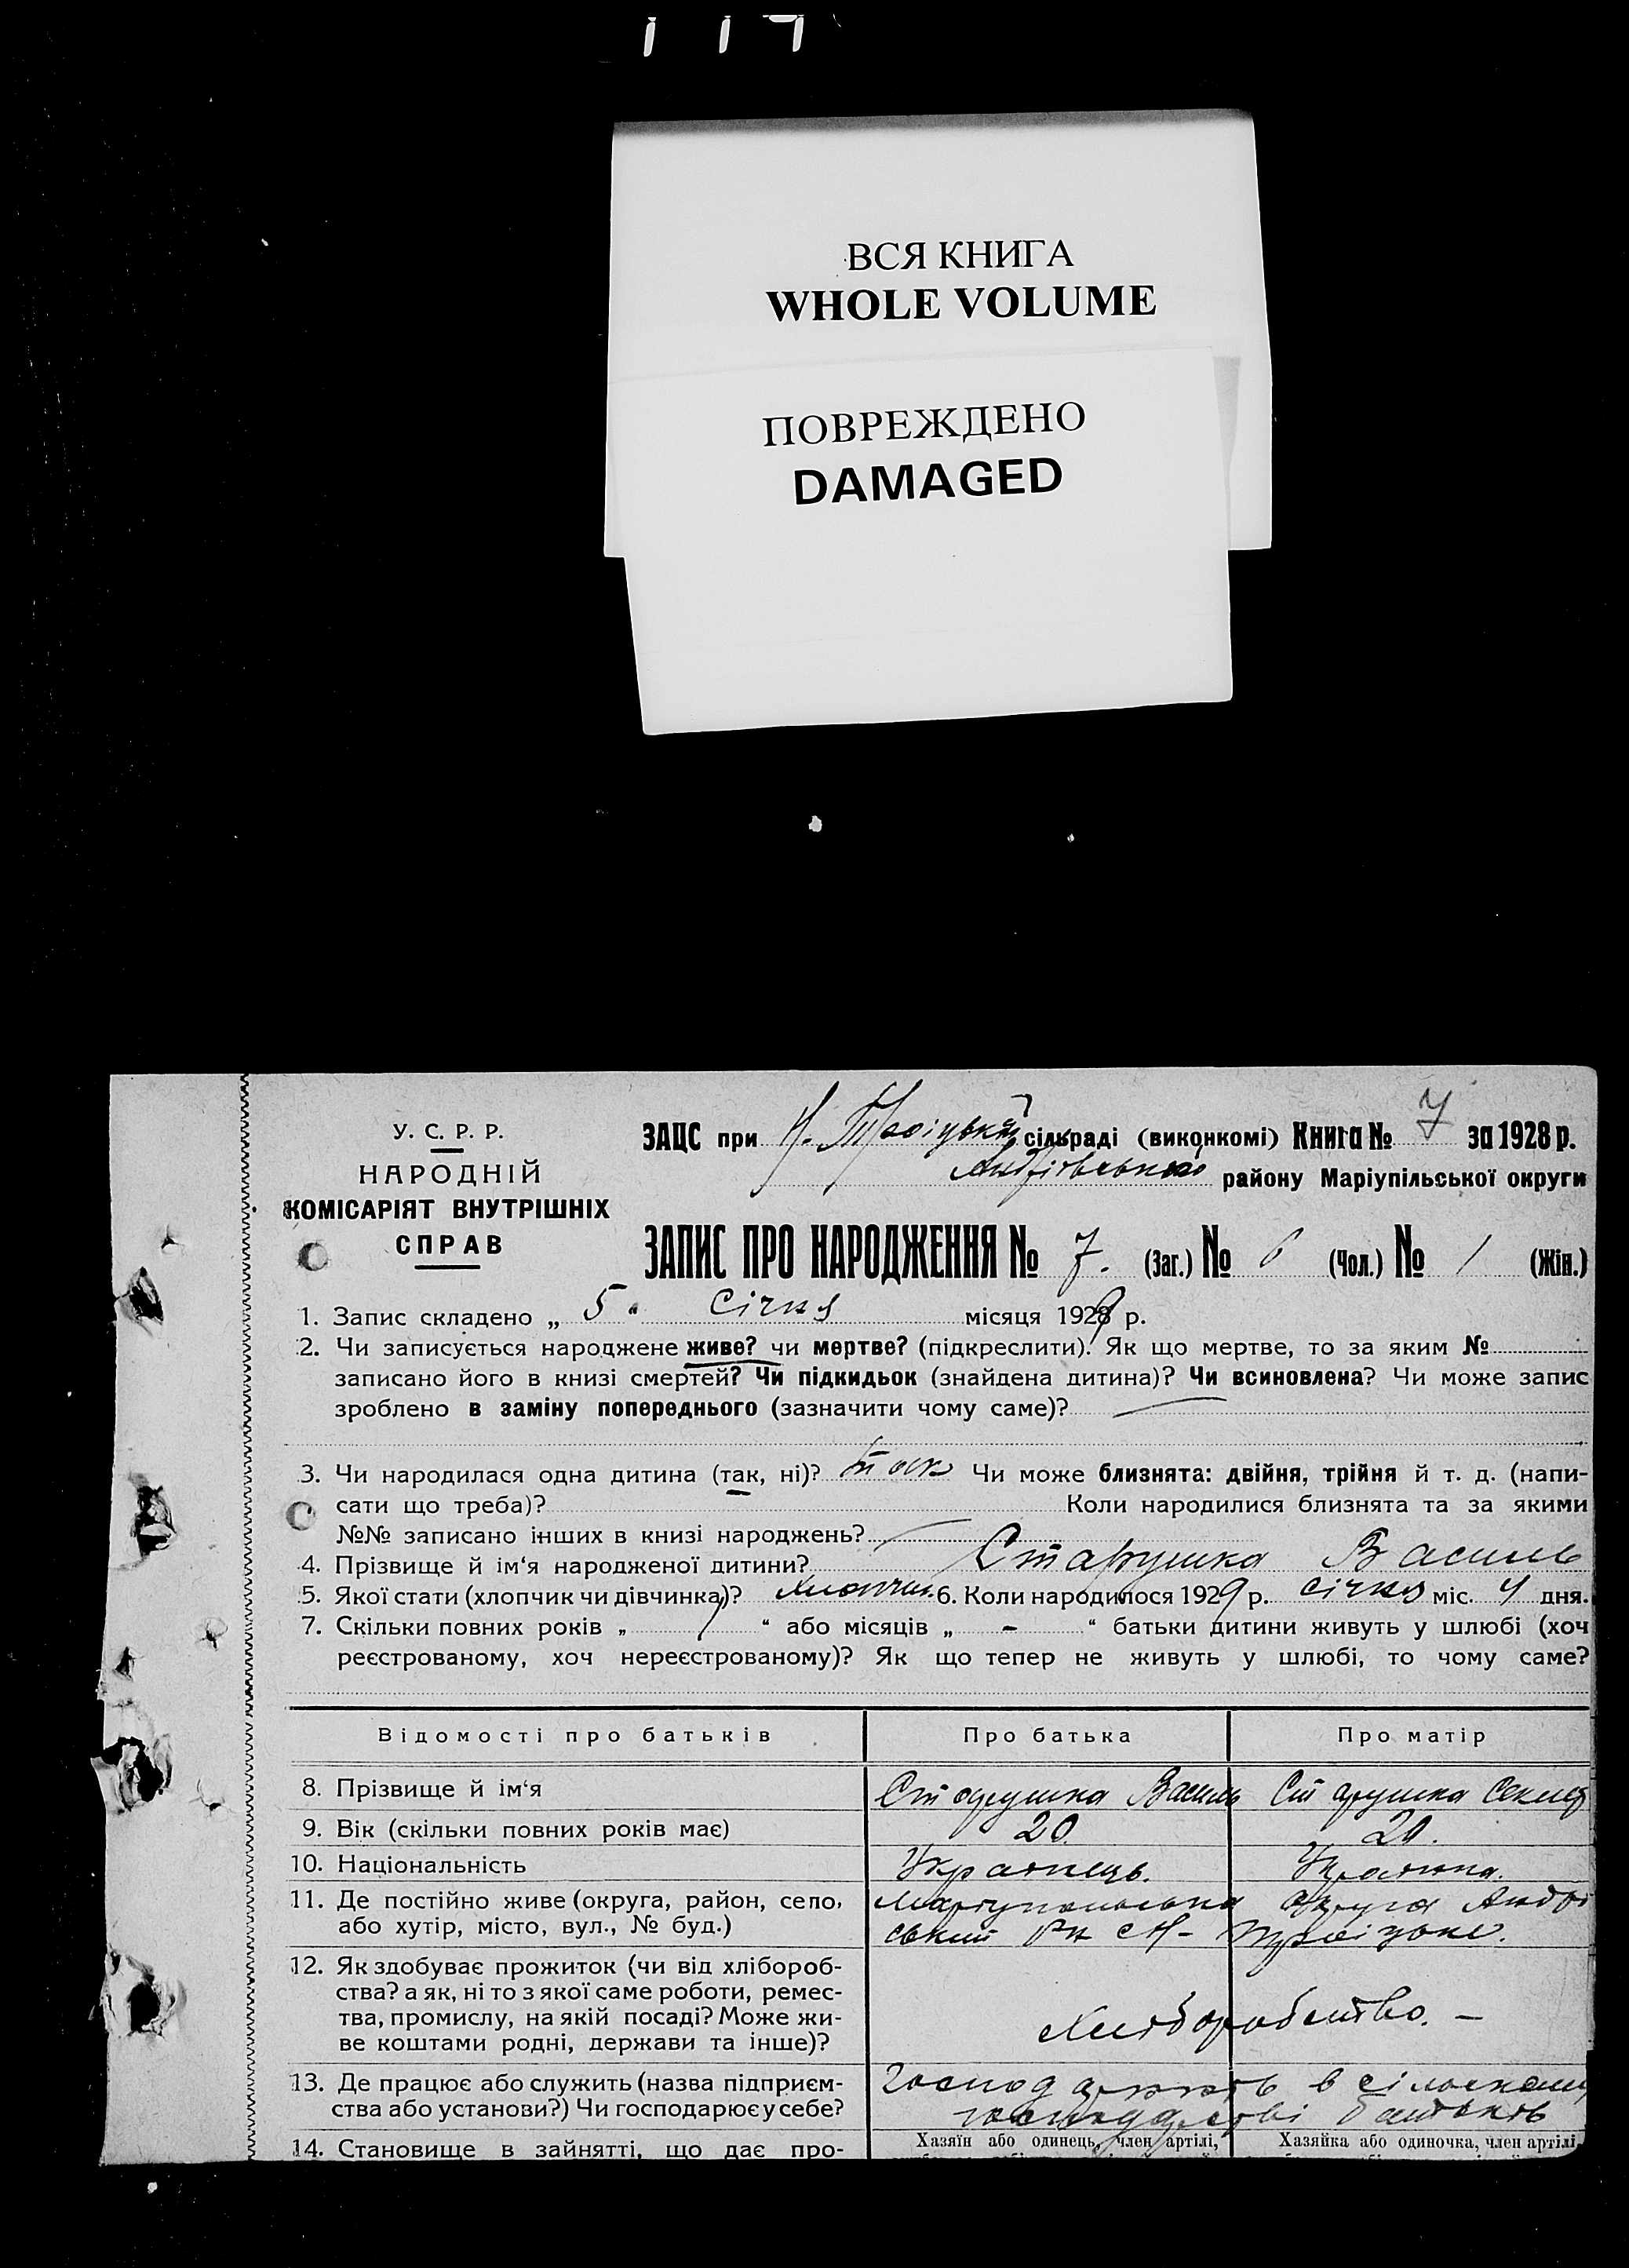 ВСЯ КНИГА
WHOLE VOLUME
ПОВРЕЖДЕНО
DAMAGED
У. С. Р. Р.
НАРОДНІЙ
КОМІСАРІЯТ ВНУТРІШНІХ
СПРАВ
ЗАЦС при Н. Троіцькій сільраді (виконкомі) Книга № 7 за 1928 р.
Андріівського району Маріупільської округи
ЗАПИС ПРО НАРОДЖЕННЯ № 7. (Заг.) № 6 (Чол.) № 1 (Жін.)
1. Запис складено „ 5 “ Січня місяця 1929 р.
2. Чи записується народжене живе? чи мертве? (підкреслити). Як що мертве, то за яким №
записано його в книзі смертей? Чи підкидьок (знайдена дитина)? Чи всиновлена? Чи може запис
зроблено в заміну попереднього (зазначити чому саме)?
3. Чи народилася одна дитина (так, ні)? так Чи може близнята: двійня, трійня й т. д. (напи-
сати що треба)? Коли народилися близнята та за якими
№№ записано інших в книзі народжень?
4. Прізвище й ім‘я народженої дитини? Старушка Василь
5. Якої стати (хлопчик чи дівчинка)? хлопчик. 6. Коли народилося 1929 р. Січня міс. 4 дня.
7. Скільки повних років „ 1 “ або місяців „ - “ батьки дитини живуть у шлюбі (хоч
реєстрованому, хоч нереєстрованому)? Як що тепер не живуть у шлюбі, то чому саме?
Відомості про батьків Про батька Про матір
8. Прізвище й ім‘я Старушка Василь Старушка
9. Вік (скільки повних років має) 20. 20.
10. Національність Украінець. Украінка.
11. Де постійно живе (округа, район, село, Маріупольська округа Андрі
або хутір, місто, вул., № буд.) ський Рн с Н- Троіцьке.
12. Як здобуває прожиток (чи від хлібороб-
ства? а як, ні то з якої саме роботи, ремес-
тва, промислу, на якій посаді? Може жи-
ве коштами родні, держави та інше)?
Хліборобство. -
13. Де працює або служить (назва підприєм- в сільском
ства або установи?) Чи господарює у себе? господарстві батьків
14. Становище в зайнятті, що дає про- Хазяїн або одинець, член артілі, Хазяйка або одиночка, член артілі